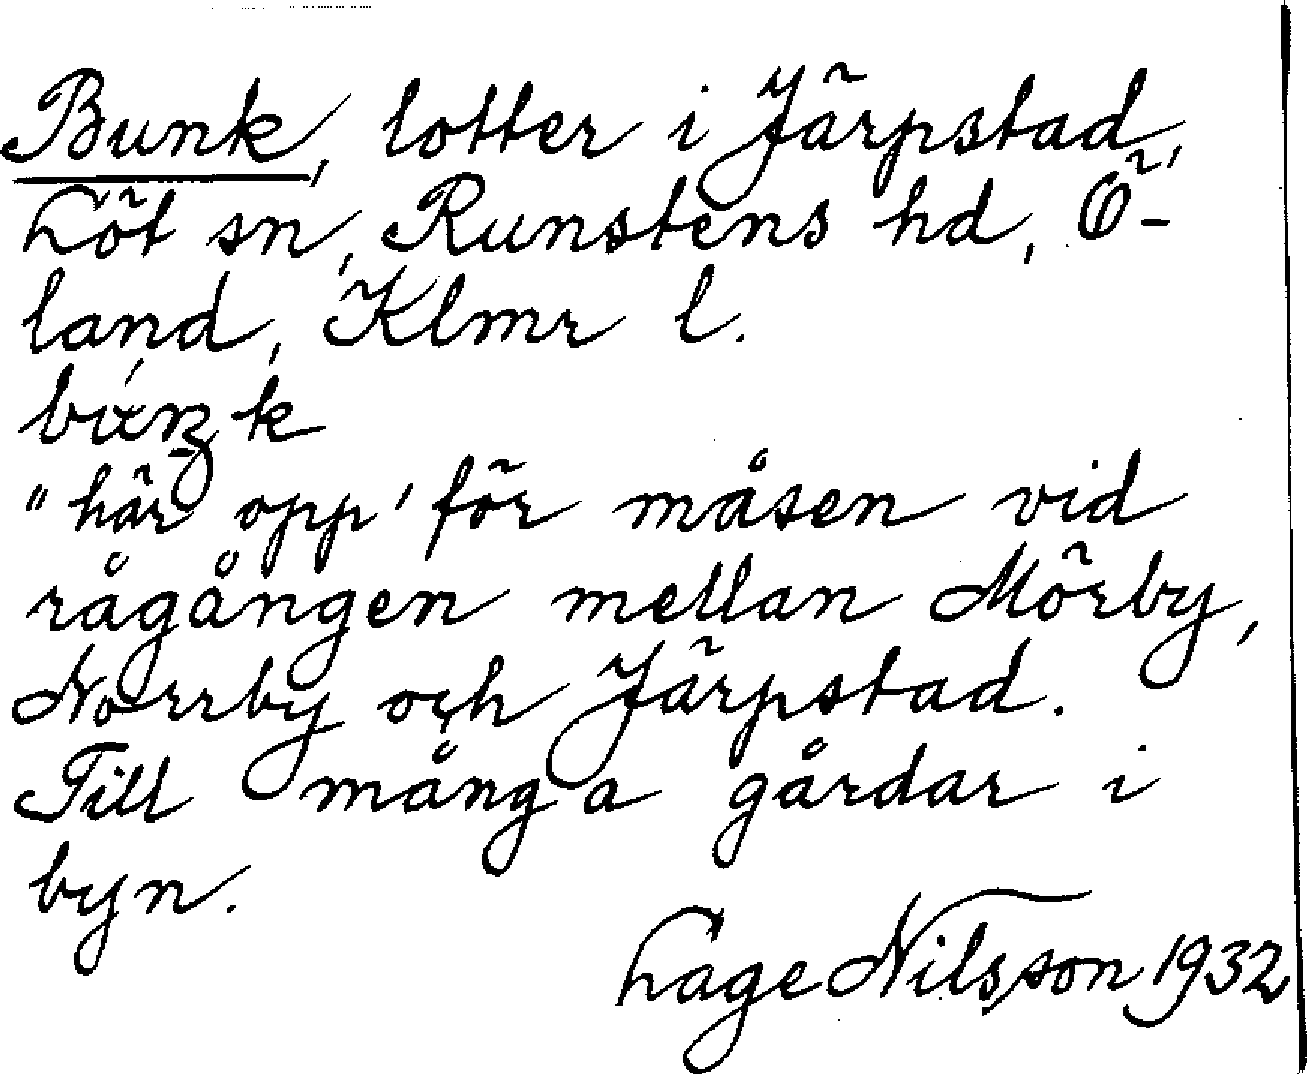 Bunk, lotter i Järpstad,
Löt sn, Runstens hd, Ö-
land, Klmr l.
"här opp' för måsen vid
rågången mellan Mörby,
Norrby och Järpstad.
Till många gårdar i
byn.
Lage Nilsson 1932